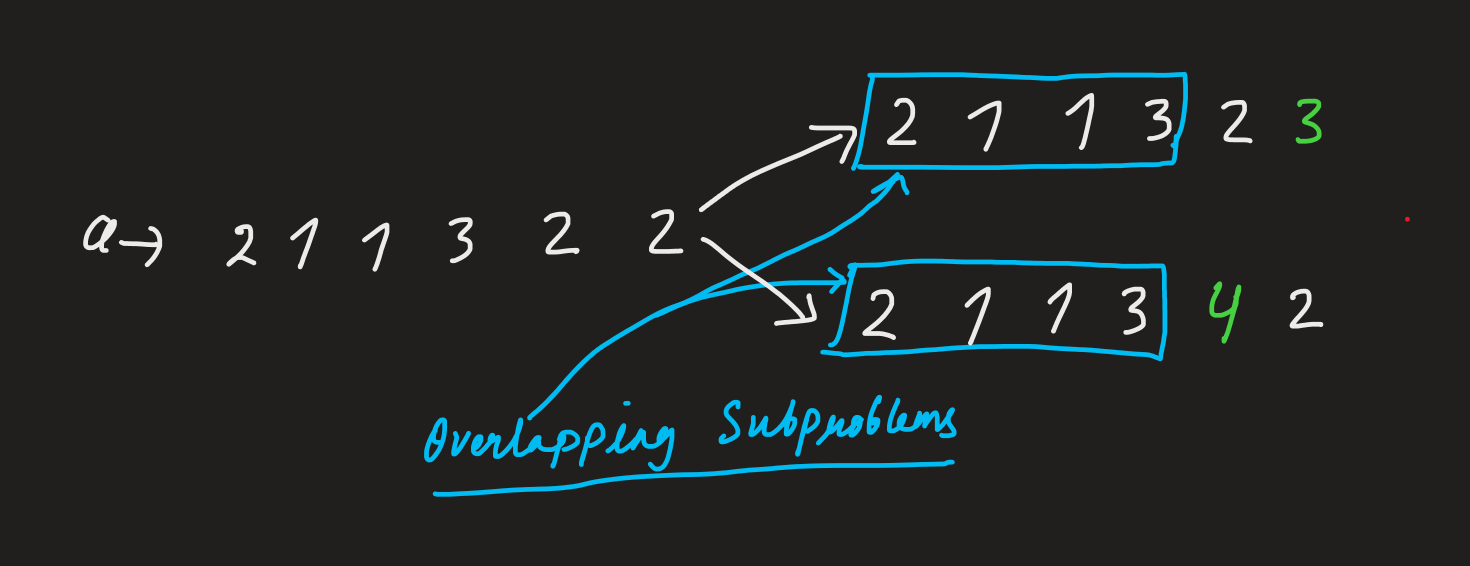 2 1 1 3 2 3
a→ 2 1 1 3 2 2
2 1 1 3 4 2
Overlapping Subproblems